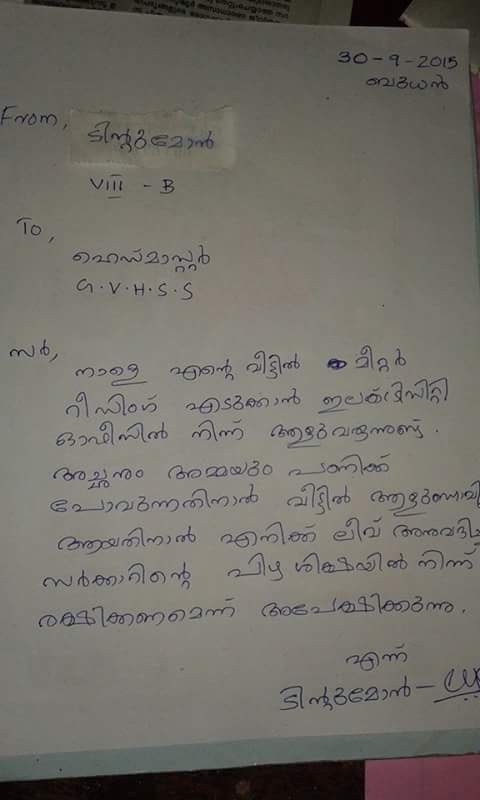 30-9-2015
ബുധൻ
From,
ടിന്റുമോൻ
VIII - B
To,
ഹെഡ്മാസ്റ്റർ
G.V.H.S.S
സർ,
നാളെ എന്റെ വീട്ടിൽ മീറ്റർ
റീഡിംഗ് എടുക്കാൻ ഇലക്ട്രിസിറ്റി
ഓഫീസിൽ നിന്ന് ആളുവരുന്നുണ്ട്.
അച്ഛനും അമ്മയും പണിക്ക്
പോവുന്നതിനാൽ വീട്ടിൽ
ആയതിനാൽ എനിക്ക് ലീവ്
സർക്കാറിന്റെ പിഴ ശിക്ഷയിൽ നിന്ന്
രക്ഷിക്കണമെന്ന് അപേക്ഷിക്കുന്നു.
എന്ന്
ടിന്റുമോൻ -